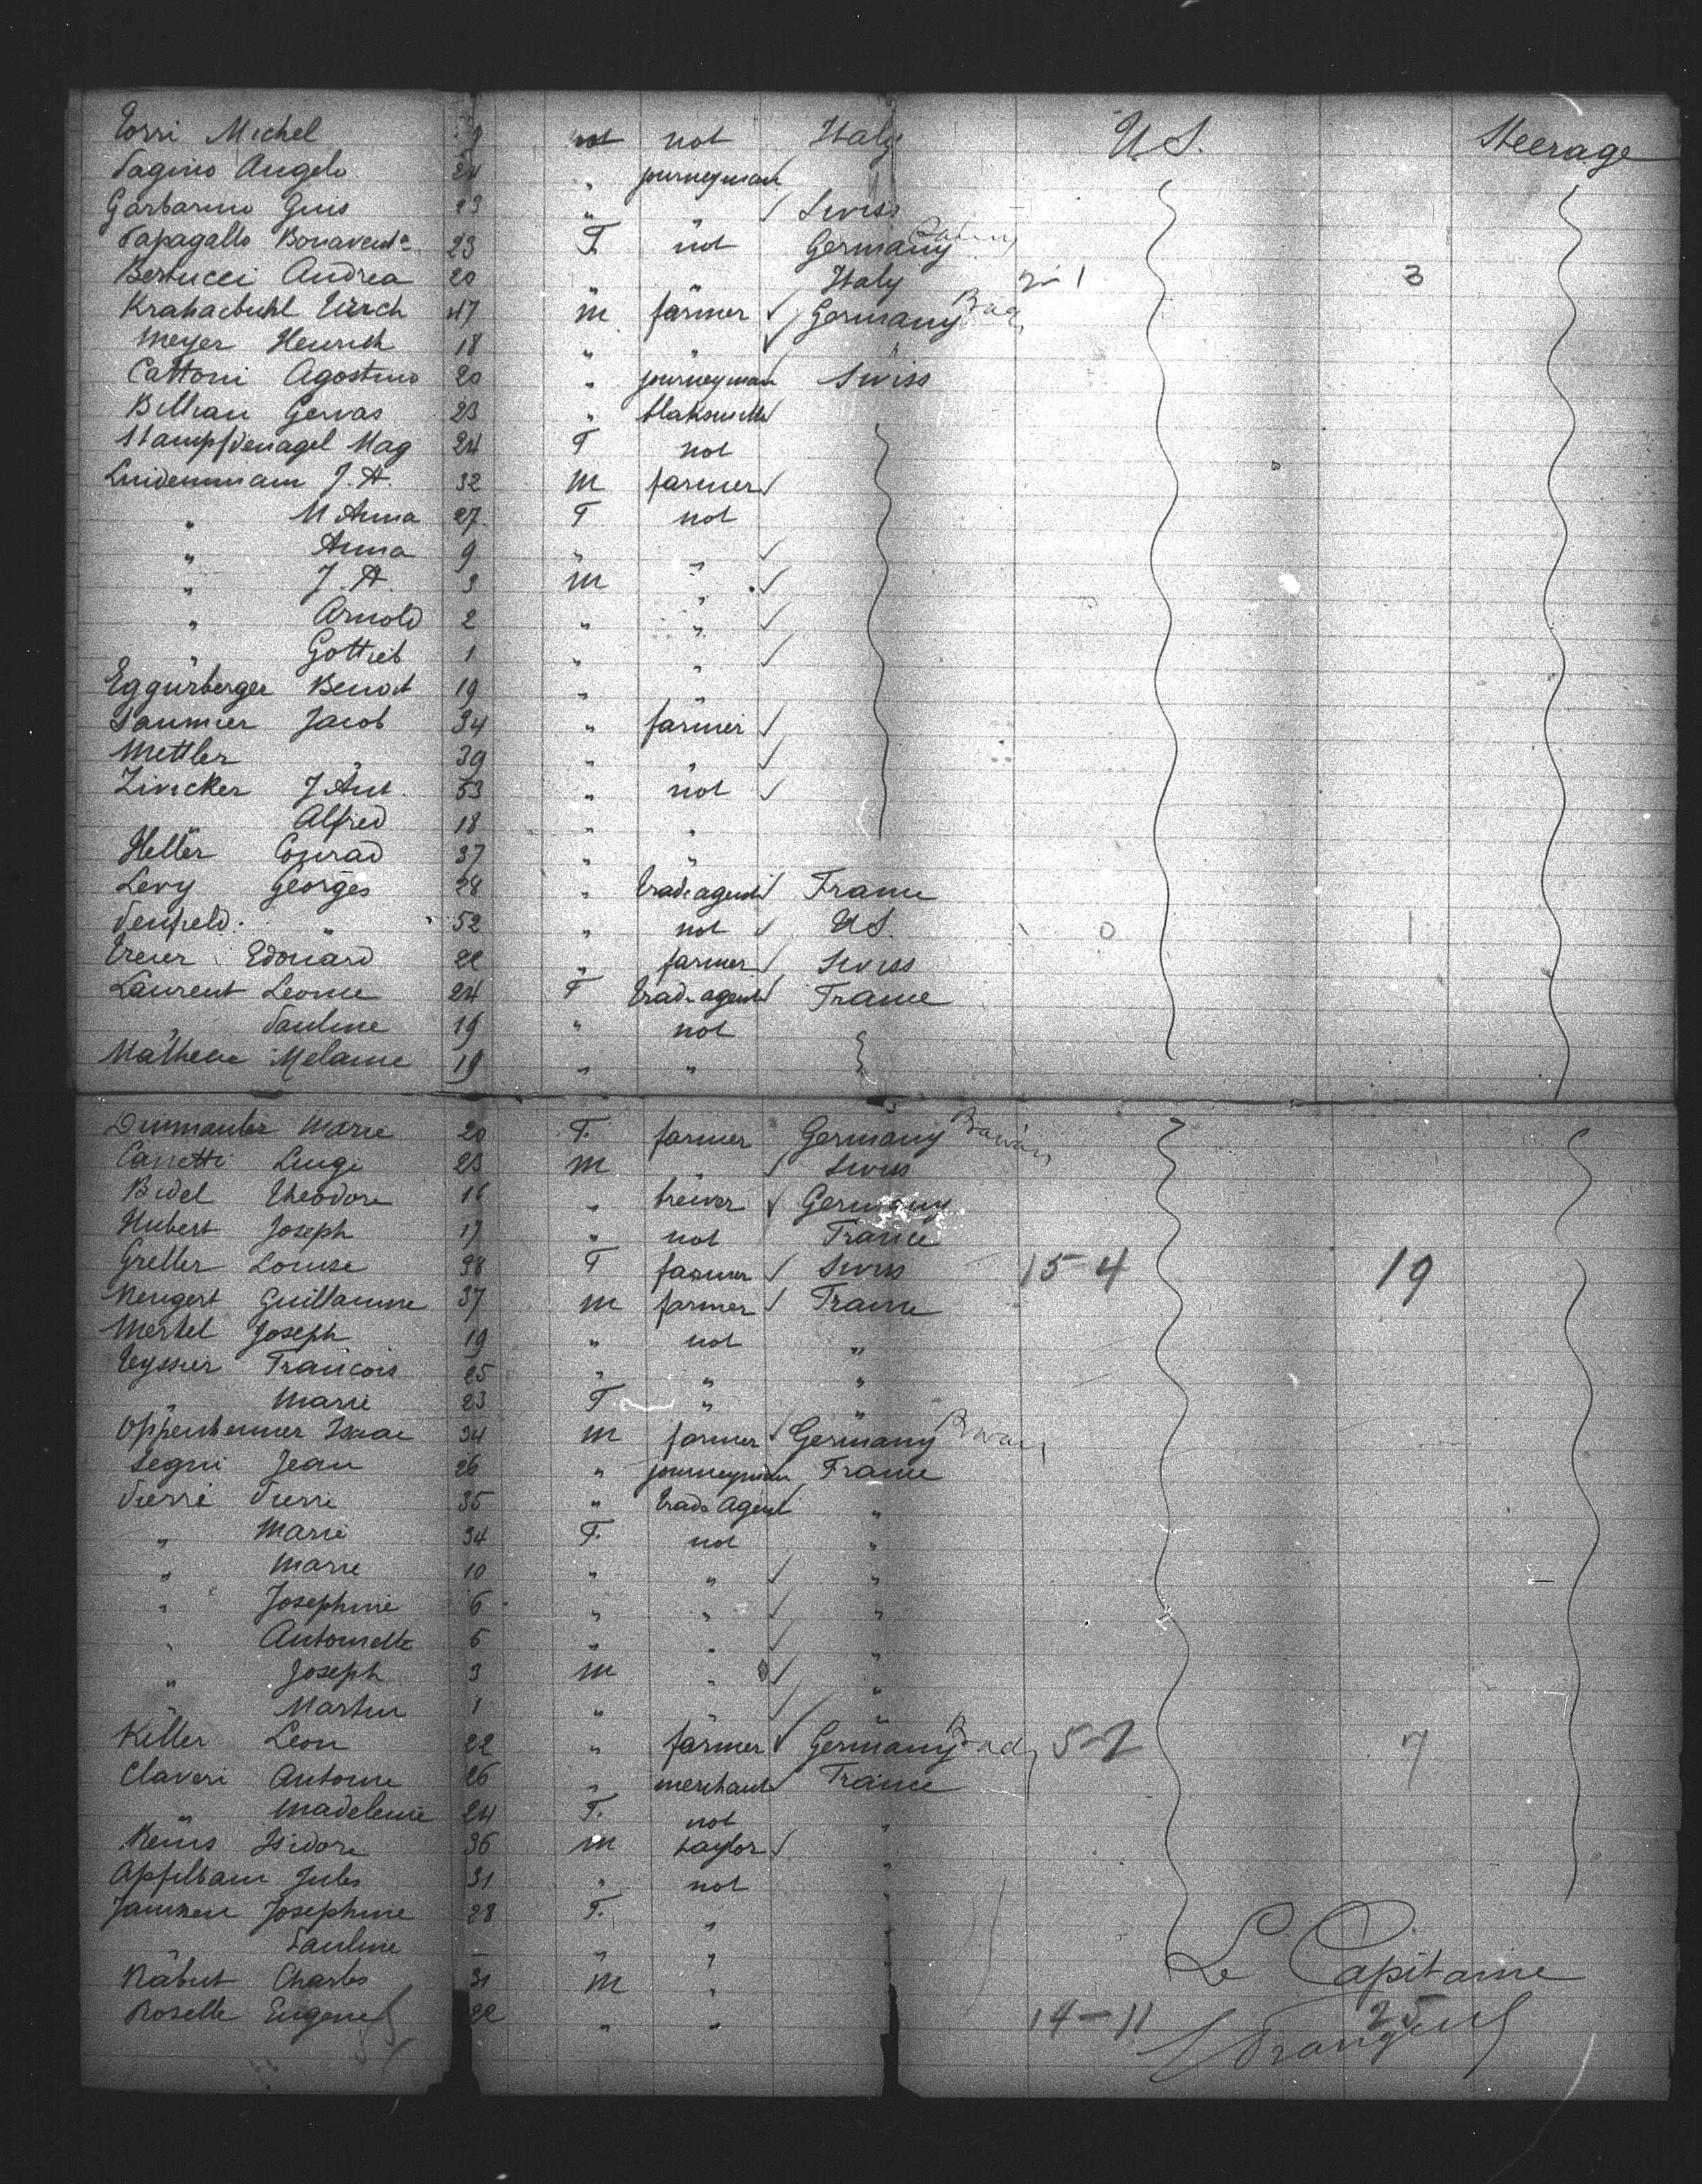 Torri Michel 9 not Italy U S. Steerage
Pagino Angelo 24 „ journeyman
Garbarino Gius 23 „ „ Swiss
Papagallo Bonavent 23 F. not Germany
Bertucci Andrea 20 „ „ Italy 2-1 3
Krahaebuhl Ulrich 47 m farmer Germany Bad
Meyer Heinrich 18 „ „ „
Cattoni Agostino 20 „ journeyman Swiss
Billian Gervas 23 „ blaksmith
Stampfdenagel Mag 24 F not
Lindenmiam J. A. 32 m farmer
„ M Anna 27 F not
„ Anna 9 „ „
„ J. A. 3 m „
„ Arnold 2 „ „
„ Gottieb 1 „ „
Eggurberger Benoit 19 „ „
Saumier Jacob 34 „ farmer
Mettler „ 39 „ „
Zivicker J Ant. 53 „ not
Alfred 18 „ „
Heller Conrad 37 „ „
Levy Georges 28 „ trade agent France
Penfeld. „ 52 „ not U S. 0 1
Treier Edouard 22 „ farmer Swiss
Laurent Leonie 24 F trade agent France
„ Pauline 19 „ not
Mathieu Melanie 19 „ „
Marie 20 F. farmer Germany Bavar
Canetti Luigi 23 m „ Swiss
Bidel Theodore 16 „ breiver Germany
Hubert Joseph 17 „ not France
Greller Louise 38 F farmer Swiss 15-4 19
Mengert Guillaume 37 m farmer France
Mertel Joseph 19 „ not „
Teyssier Francois 25 „ „ „
„ Marie 23 F „ „
Oppenheimer Isaac 34 m farmer Germany Bavar
Segui Jean 26 „ journeyman France
Pierre Pierre 35 „ trade agent „
„ Marie 34 F. not „
„ Marie 10 „ „ „
„ Josephine 6 „ „ „
„ Antoinette 5 „ „ „
„ Joseph 3 m „ „
„ Martin 1 „ „
Killer Leon 22 „ farmer Germany Bad 5-2 7
Claveri Antoine 26 „ merchant France
„ Madeleine 24 F. not „
Reins Isidore 36 m taylor
Apfelbaum Jules 31 „ not „
Jannsen Josephine 28 F. „ „
Pauline - „ „ Le Capitaine
Rabut Charles 31 m „
Roselle Eugene 22 „ „ 14-11 25